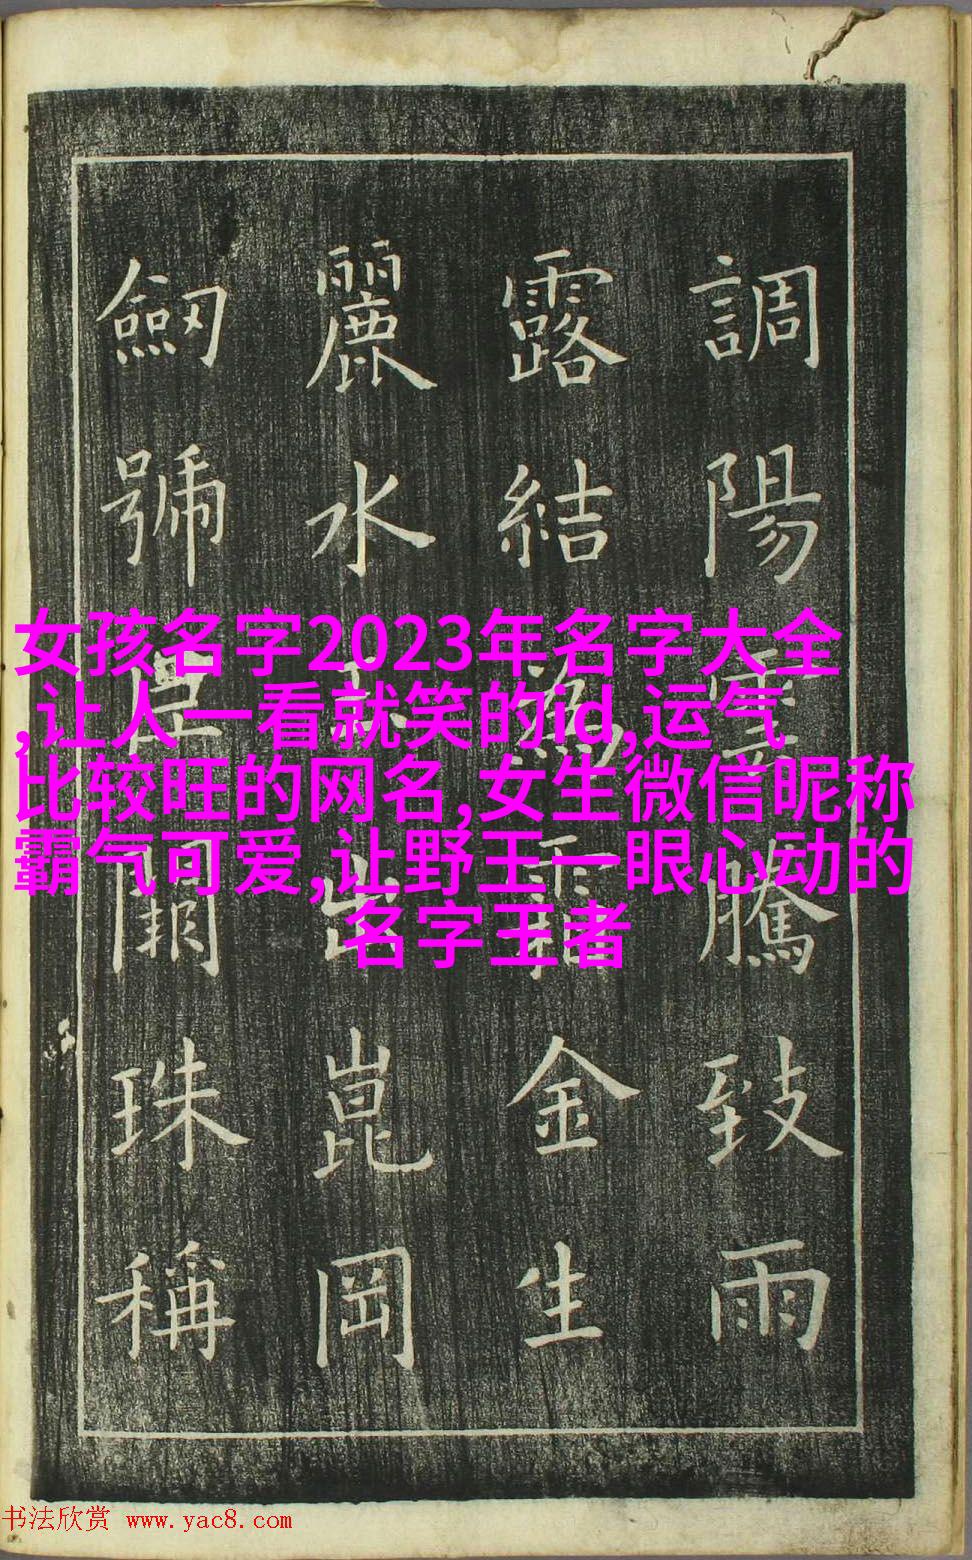 調陽騰致雨
露結金生
麗水崑岡
劒號闕珠稱
女孩名字2023年名字大全
,让人一看就笑的id,运气
比较旺的网名,女生微信昵称
霸气可爱,让野王一眼心动的
名字王者
书法欣赏 www.yac8.com